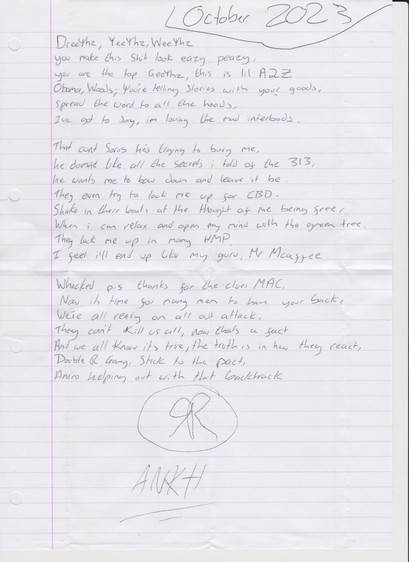 October 2023
DreeYhz, YeeYhz, WeeYhz
you make this shit look eazy peazy,
you are the top GeeYhz, this is lil A2Z
Obama, Woods; You're telling stories with your goods,
Spread the word to all the hoods,
I've got to say, im loving the mad interludes.
That cunt Soros he's trying to bury me,
he doesn't like all the secrets i told of the 313,
he wants me to bow down and leave it be
They even try to lock me up for CBD.
Shake in their boots at the thought of me being free,
When i can relax and open my mind with the green tree.
They lock me up in many HMP.
I feel i'll end up like my guru, Mr Mcaffee.
Whacked p.s thanks for the clues MAC.
Now its time for many men to have your back,
We're all ready on all out attack,
They can't kill us all, now thats a fact
And we all know its true, the truth is in how they react,
Double R Gang, Stick to the pact,
helping out with that
RR
ANKH